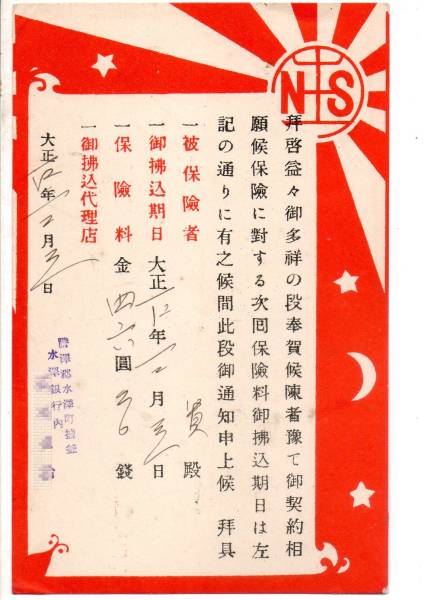 NS
拜啓益々御多祥の段奉賀候陳者豫て御契約相
願候保險に對する次回保險料御拂込期日は左
記の通りに有之候間此段御通知申上候 拜具
一被保險者 殿
一御拂込期日 大正 年 月 日
一保險料 金四六圓 錢
一御拂込代理店
大正 年 月 日
膽澤郡水澤町
水澤銀行內